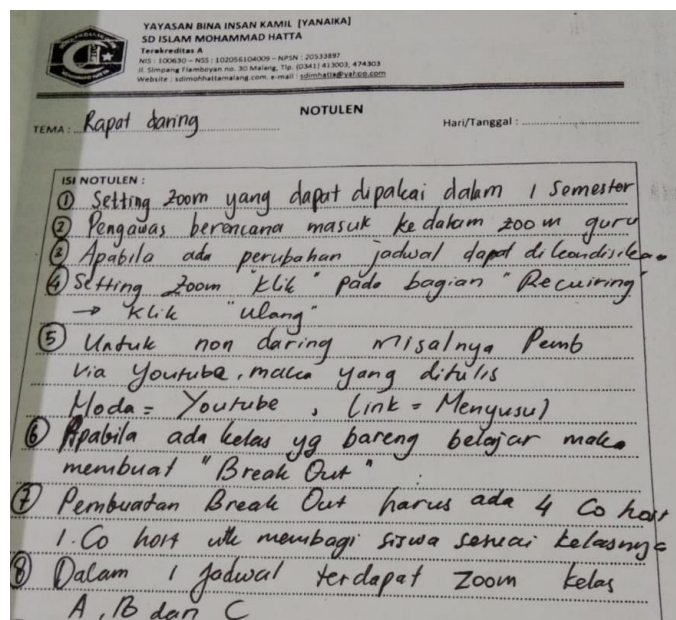 YAYASAN BINA INSAN KAMIL [YANAIKA]
SD ISLAM MOHAMMAD HATTA
Terakreditas A
NIS : 100630 – NSS : 102056104009 – NPSN : 20533897
Jl. Simpang Flamboyan no. 30 Malang, Tlp. (0341) 413003, 474303
Website : sdimohhattamalang.com, e-mail : sdimhatta@yahoo.com
NOTULEN
TEMA : Rapat daring
Hari/Tanggal :
ISI NOTULEN :
① Setting zoom yang dapat dipakai dalam 1 Semester
② Pengawas berencana masuk ke dalam zoom guru
③ Apabila ada perubahan jadwal dapat dikondisikan
④ Setting zoom "Klik" pada bagian "Recuiring"
→ Klik "ulang"
⑤ Untuk non daring misalnya Pemb
via Youtube, maka yang ditulis
Moda = Youtube, Link = Menyusul
⑥ Apabila ada kelas yg bareng belajar maka
membuat "Break Out"
⑦ Pembuatan Break Out harus ada 4 Co host
1. Co host utk membagi siswa sesuai kelasnya
⑧ Dalam 1 jadwal terdapat zoom kelas
A, B dan C